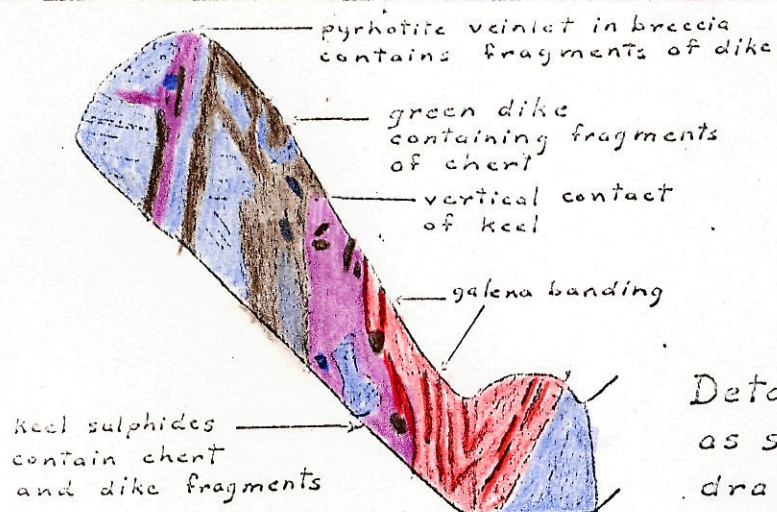 pyrhotite veinlet in breccia
contains fragments of dike
green dike
containing fragments
of chert
vertical contact
of keel
galena banding
keel sulphides
contain chert
and dike fragments
as